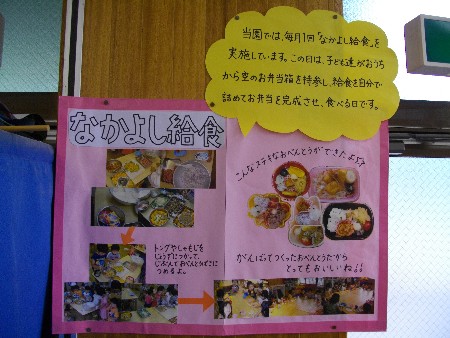 当園では、毎月1回「なかよし給食」を
実施しています。この日は、子ども達がおうち
から空のお弁当箱を持参し、給食を自分で
詰めてお弁当を完成させ、食べる日です。
なかよし給食
こんなステキなおべんとうができたよ!?
トングやしゃもじを
じょうずにつかって、
じぶんでおべんとうばこに
つめるよ。
がんばってつくったおべんとうだから
とってもおいしいね♪♪